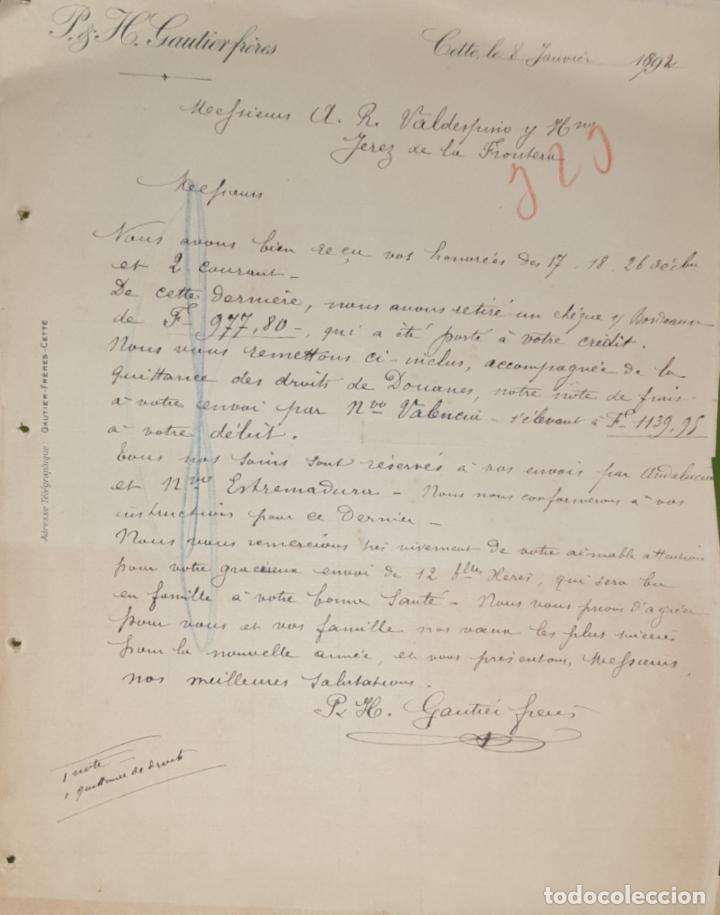 P. & H. Gautier frères
Cette, le 8 Janvier 1892
Messieurs A. R. Valdespino y Hno
Jerez de la Frontera
Messieurs
Nous avons bien reçu vos honorées des 17. 18. 26 décbre
et 2 courant -
De cette dernière, nous avons retiré un chèque s/ Bordeaux
de F. 977,80 -, qui a été porté à votre crédit.
Nous vous remettons ci-inclus, accompagnée de la
quittance des droits de Douanes, notre note de frais
à votre envoi par Nvo Valencia - s'élevant à F. 1139,95
à votre débit.
Tous nos soins sont réservés à vos envois par Andalucia
et Nvo Estremadura - Nous nous conformerons à vos
instructions pour ce Dernier -
Nous vous remercions très vivement de votre aimable attention
pour votre gracieux envoi de 12 blles Xérès, qui sera bu
en famille à votre bonne santé - Nous vous prions d'agréer
pour vous et vos famille nos vœux les plus sincères
pour la nouvelle année, et vous présentons, Messieurs,
nos meilleures salutations.
P. H. Gautier frères
1 note
1 quittance de droits
Adresse Télégraphique: GAUTIER-FRÈRES-CETTE
todocoleccion